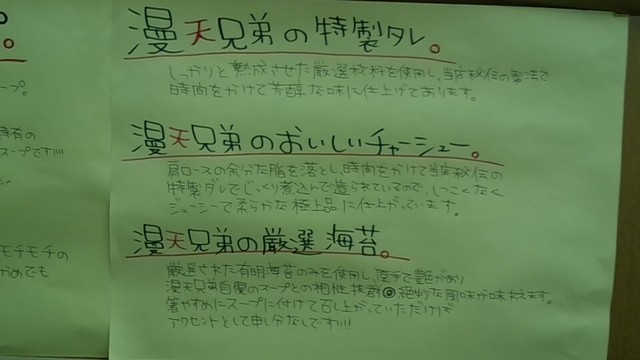 漫天兄弟の特製タレ。
しっかりと熟成させた厳選材料を使用し、当店秘伝の製法で
時間をかけて芳醇な味に仕上げております。
漫天兄弟のおいしいチャーシュー。
肩ロースの余分な脂を落とし、時間をかけて当店秘伝の
特製ダレでじっくり煮込んで造られているので、しつこくなく
ジューシーで柔らかな極上品に仕上がっています。
漫天兄弟の厳選海苔。
厳選された有明海苔のみを使用し、厚手で艶があり
漫天兄弟自慢のスープとの相性抜群◎絶妙な風味が味わえます。
箸やすめにスープに付けて召し上がっていただけるで
アクセントとして申し分なしです!!!!
ープ。
有の
スープです!!!!
モチモチの
かめでも